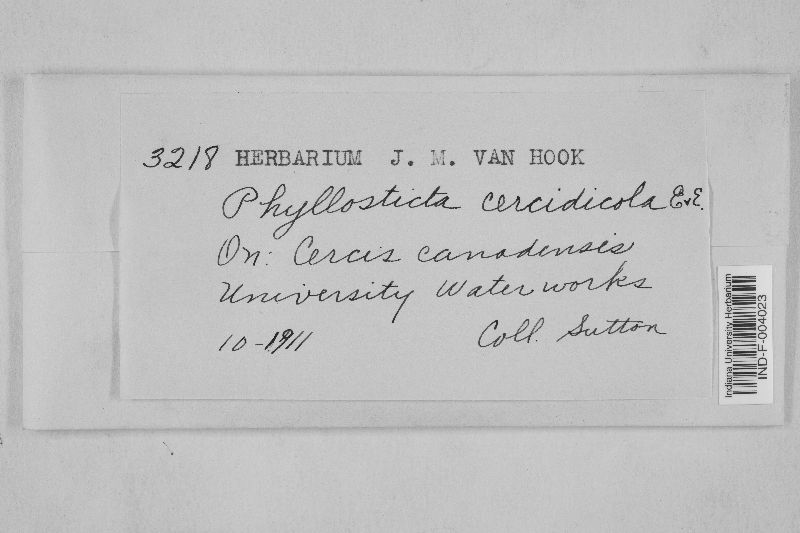 3218 HERBARIUM J. M. VAN HOOK
Phyllosticta cercidicola E&E.
On: Cercis canadensis
University Water works
10-1911 Coll. Sutton
Indiana University Herbarium
IND-F-004023